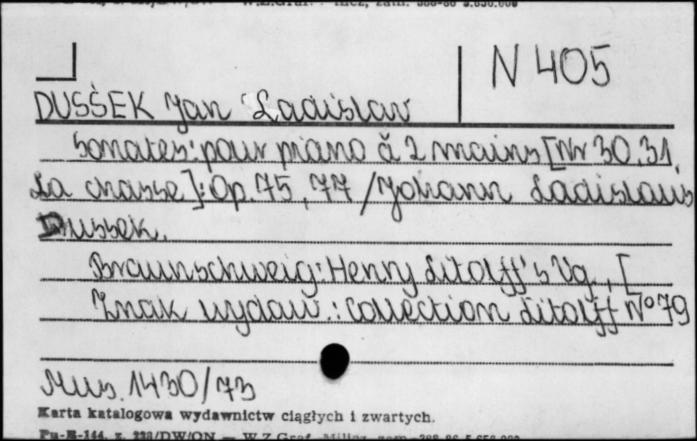 N 405
DUSŚEK Jan Ladislav
Sonates: pour piano à 2 mains [Nr 30, 31,
La chasse]: Op. 75, 77 / Johann Ladislaus
Dussek.
Braunschweig: Henry Litolff's Vg., [
Znak wydaw.: Collection Litolff N° 79
Mus. 1430/73
Karta katalogowa wydawnictw ciągłych i zwartych.